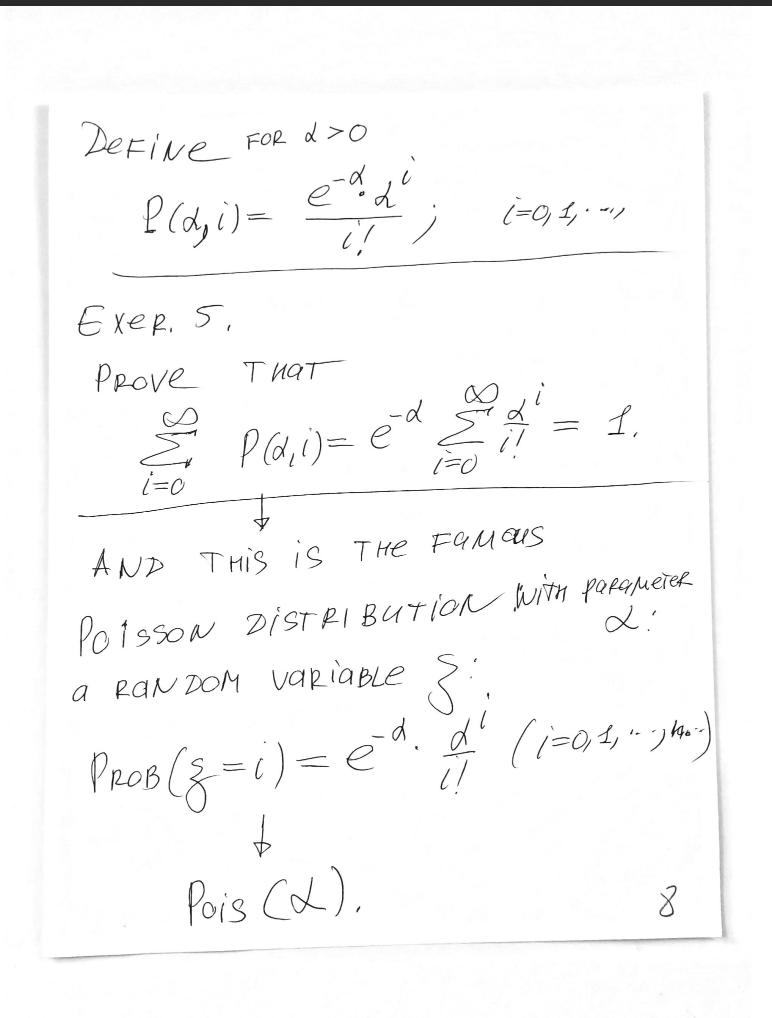 DEFINE FOR α > 0
P(α, i) = e^{-α} · α^i / i! ; i=0, 1, ...,
EXER. 5.
PROVE THAT
∑_{i=0}^{∞} P(α, i) = e^{-α} ∑_{i=0}^{∞} α^i / i! = 1.
↓
AND THIS IS THE FAMOUS
POISSON DISTRIBUTION WITH PARAMETER
α:
a RANDOM VARIABLE ξ:
PROB(ξ = i) = e^{-α} · α^i / i! (i=0, 1, ..., n...)
↓
Pois(α).
8